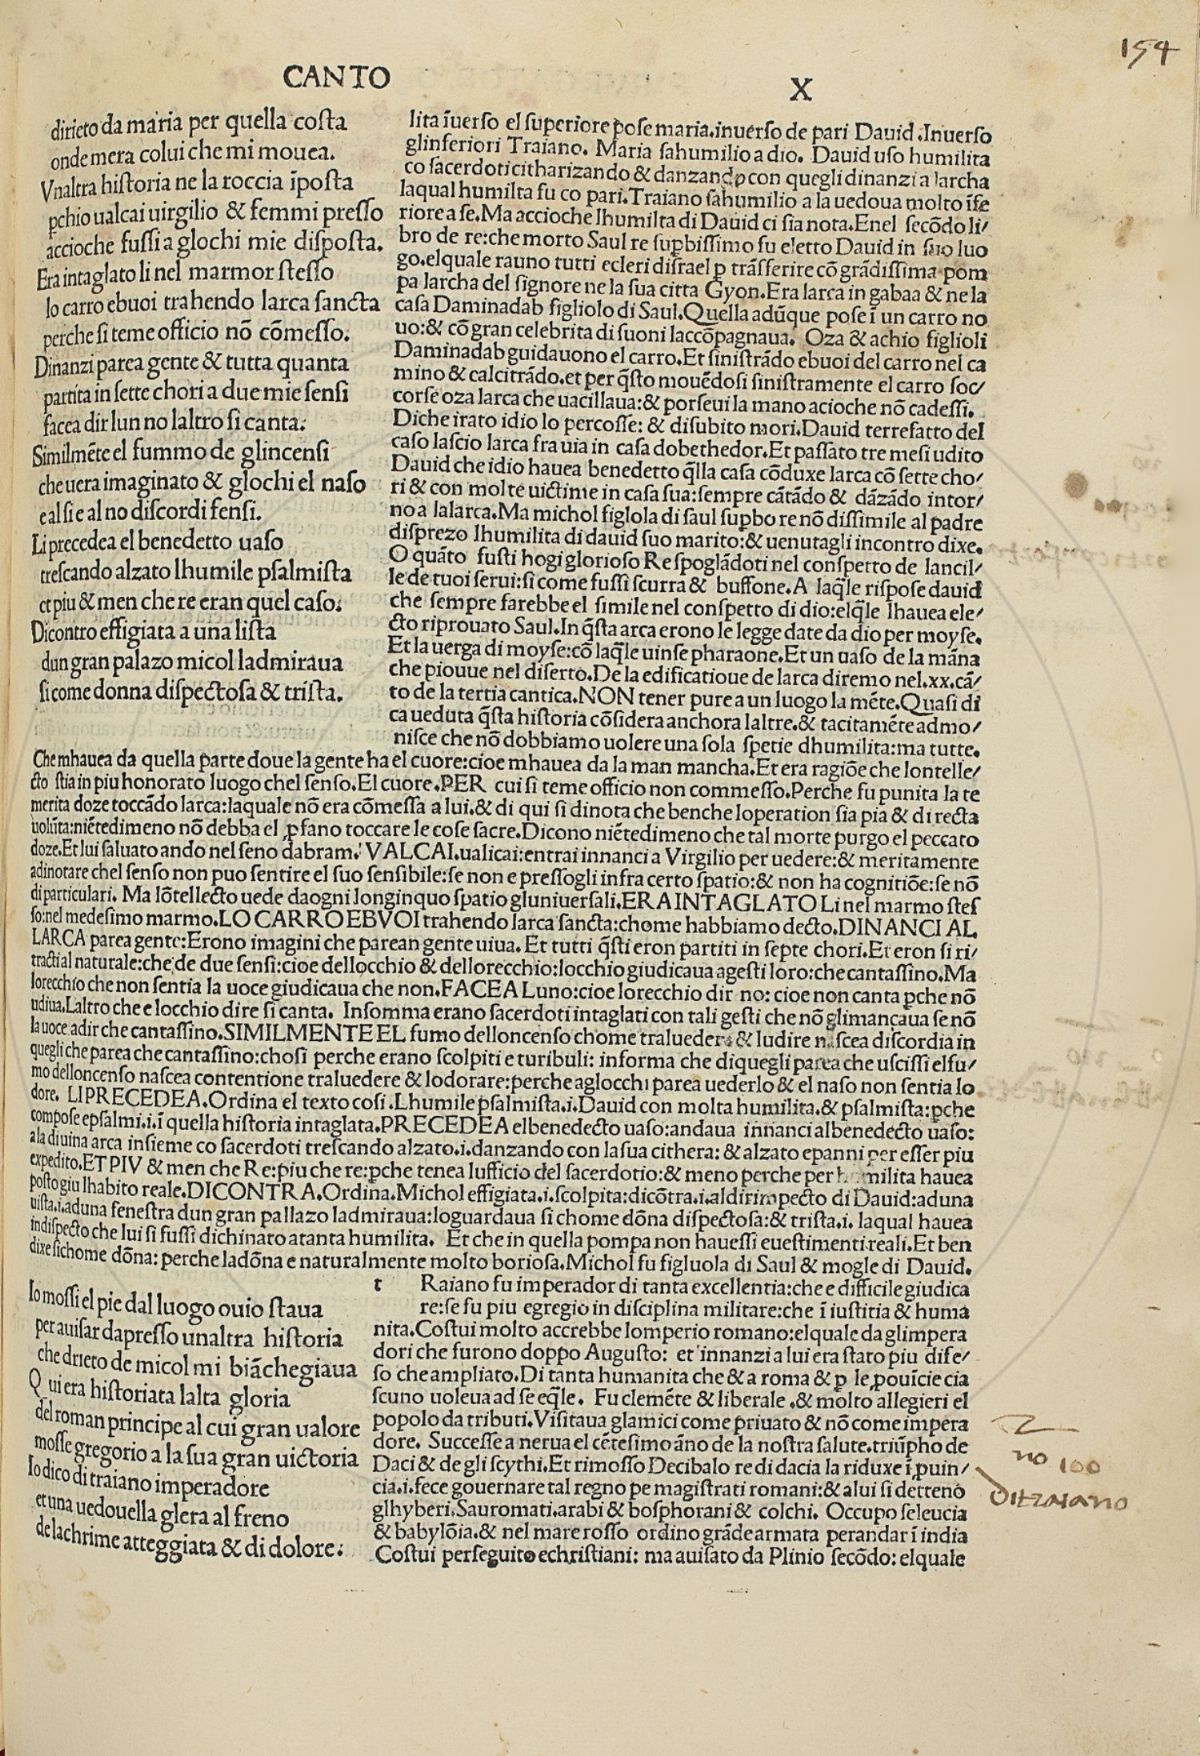 154
CANTO X
dirieto da maria per quella costa
onde mera colui che mi mouea.
Vnaltra historia ne la roccia īposta
pchio ualcai uirgilio & femmi presso
accioche fussi a glochi mie disposta.
Era intaglato li nel marmor stesso
lo carro ebuoi trahendo larca sancta
perche si teme officio nō cōmesso.
Dinanzi parea gente & tutta quanta
partita in sette chori a due mie sensi
facea dir lun no laltro si canta.
Similmēte el fummo de glincensi
che uera imaginato & glochi el naso
e al si e al no discordi fensi.
Li precedea el benedetto uaso
trescando alzato lhumile psalmista
et piu & men che re eran quel caso.
Dicontro effigiata a una lista
dun gran palazo micol ladmiraua
si come donna dispectosa & trista.
lita īuerso el superiore pose maria.inuerso de pari Dauid.Inuerso
glinferiori Traiano. Maria sahumilio a dio. Dauid uso humilita
co sacerdoti citharizando & danzando con quegli dinanzi a larcha
laqual humilta fu co pari.Traiano sahumilio a la uedoua molto īfe
riore a se.Ma accioche lhumilta di Dauid ci sia nota.Enel secōdo li/
bro de re:che morto Saul re supbissimo fu eletto Dauid in suo luo
go.elquale rauno tutti ecleri disrael p trāsferire cō grādissima pom
pa larcha del signore ne la sua citta Gyon.Era larca in gabaa & ne la
casa Daminadab figliolo di Saul.Quella adūque pose ī un carro no
uo:& cō gran celebrita di suoni laccōpagnaua. Oza & achio figlioli
Daminadab guidauono el carro.Et sinistrādo ebuoi del carro nel ca
mino & calcitrādo.et per q̄sto mouēdosi sinistramente el carro soc/
corse oza larca che uacillaua:& porseui la mano acioche nō cadessi.
Diche irato idio lo percosse: & disubito mori.Dauid terrefatto del
caso lascio larca fra uia in casa dobethedor.Et passato tre mesi udito
Dauid che idio hauea benedetto q̄lla casa cōduxe larca cō sette cho/
ri & con molte uictime in casa sua:sempre cātādo & dāzādo intor/
no a lalarca.Ma michol figlola di saul supbo re nō dissimile al padre
disprezo lhumilita di dauid suo marito:& uenutagli incontro dixe.
O quāto fusti hogi glorioso Re spoglādoti nel conspetto de lancil/
le de tuoi serui:si come fussi scurra & buffone. A laq̄le rispose dauid
che sempre farebbe el simile nel conspetto di dio:elq̄le lhauea ele/
cto riprouato Saul.In q̄sta arca erono le legge date da dio per moyse.
Et la uerga di moyse:cō laq̄le uinse pharaone.Et un uaso de la māna
che piouue nel diserto.De la edificatioue de larca diremo nel.xx.cā/
to de la tertia cantica.NON tener pure a un luogo la mēte.Quasi di
ca ueduta q̄sta historia cōsidera anchora laltre.& tacitamēte admo/
nisce che nō dobbiamo uolere una sola spetie dhumilita:ma tutte.
Che mhauea da quella parte doue la gente ha el cuore:cioe mhauea da la man mancha.Et era ragiōe che lontelle/
cto stia in piu honorato luogo chel senso.El cuore.PER cui si teme officio non commesso.Perche fu punita la te
merita doze toccādo larca:laquale nō era cōmessa a lui.& di qui si dinota che benche loperation sia pia & di recta
uolūta:niētedimeno nō debba el pfano toccare le cose sacre.Dicono niētedimeno che tal morte purgo el peccato
doze.Et lui saluato ando nel seno dabram. VALCAI.ualicai:entrai innanci a Virgilio per uedere:& meritamente
adinotare chel senso non puo sentire el suo sensibile:se non e pressogli infra certo spatio:& non ha cognitiōe:se nō
di particulari. Ma lōtellecto uede daogni longinquo spatio gluniuersali.ERA INTAGLATO Li nel marmo stes
so:nel medesimo marmo.LO CARRO EBVOI trahendo larca sancta:chome habbiamo decto.DINANCI AL
LARCA parea gente:Erono imagini che parean gente uiua. Et tutti q̄sti eron partiti in septe chori.Et eron si ri/
tracti al naturale:che de due sensi:cioe dellocchio & dellorecchio:locchio giudicaua agesti loro:che cantassino.Ma
lorecchio che non sentia la uoce giudicaua che non.FACEA Luno:cioe lorecchio dir no: cioe non canta pche nō
udiua.Laltro che e locchio dire si canta. Insomma erano sacerdoti intaglati con tali gesti che nō glimancaua se nō
la uoce a dir che cantassino.SIMILMENTE EL fumo delloncenso chome traluedere & ludire nascea discordia in
quegli che parea che cantassino:chosi perche erano scolpiti e turibuli: informa che diquegli parea che uscissi elfu/
mo delloncenso nascea contentione traluedere & lodorare:perche aglocchi parea uederlo & el naso non sentia lo
dore. LI PRECEDEA.Ordina el texto cosi.Lhumile psalmista.i.Dauid con molta humilita.& psalmista:pche
compose epsalmi.i.ī quella historia intaglata.PRECEDEA elbenedecto uaso:andaua innanci albenedecto uaso:
a la diuina arca insieme co sacerdoti trescando alzato.i.danzando con la sua cithera: & alzato epanni per esser piu
expedito.ET PIV & men che Re:piu che re:pche tenea lufficio del sacerdotio:& meno perche per humilita hauea
posto giu lhabito reale.DICONTRA.Ordina.Michol effigiata.i.scolpita:dicōtra.i.aldirimpecto di Dauid:aduna
uista.i.aduna fenestra dun gran pallazo ladmiraua:loguardaua si chome dōna dispectosa:& trista.i. laqual hauea
indispecto che lui si fussi dichinato atanta humilita. Et che in quella pompa non hauessi euestimenti reali.Et ben
dixe sichome dōna: perche ladōna e naturalmente molto boriosa.Michol fu figluola di Saul & mogle di Dauid.
Io mossi el pie dal luogo ouio staua
per auisar dapresso unaltra historia
che drieto de micol mi biāchegiaua
Qui era historiata lalta gloria
del roman principe al cui gran ualore
mosse gregorio a la sua gran uictoria
Io dico di traiano imperadore
et una uedouella glera al freno
de lachrime atteggiata & di dolore:
t Raiano fu imperador di tanta excellentia:che e difficile giudica
re:se fu piu egregio in disciplina militare:che ī iustitia & huma
nita.Costui molto accrebbe lomperio romano:elquale da glimpera
dori che furono doppo Augusto: et innanzi a lui era stato piu dife/
so che ampliato.Di tanta humanita che & a roma & p le puicie cia
scuno uoleua ad se eq̄le. Fu clemēte & liberale .& molto allegieri el
popolo da tributi.Visitaua glamici come priuato & nō come impera
dore. Successe a nerua el cētesimo āno de la nostra salute.triūpho de
Daci & de gli scythi.Et rimosso Decibalo re di dacia la riduxe ī puin/
cia.i.fece gouernare tal regno pe magistrati romani:& a lui si detteno
glhyberi.Sauromati.arabi & bosphorani & colchi. Occupo seleucia
& babylōia.& nel mare rosso ordino grāde armata per andar ī india
Costui perseguito echristiani: ma auisato da Plinio secōdo: elquale
no 100
di traiano